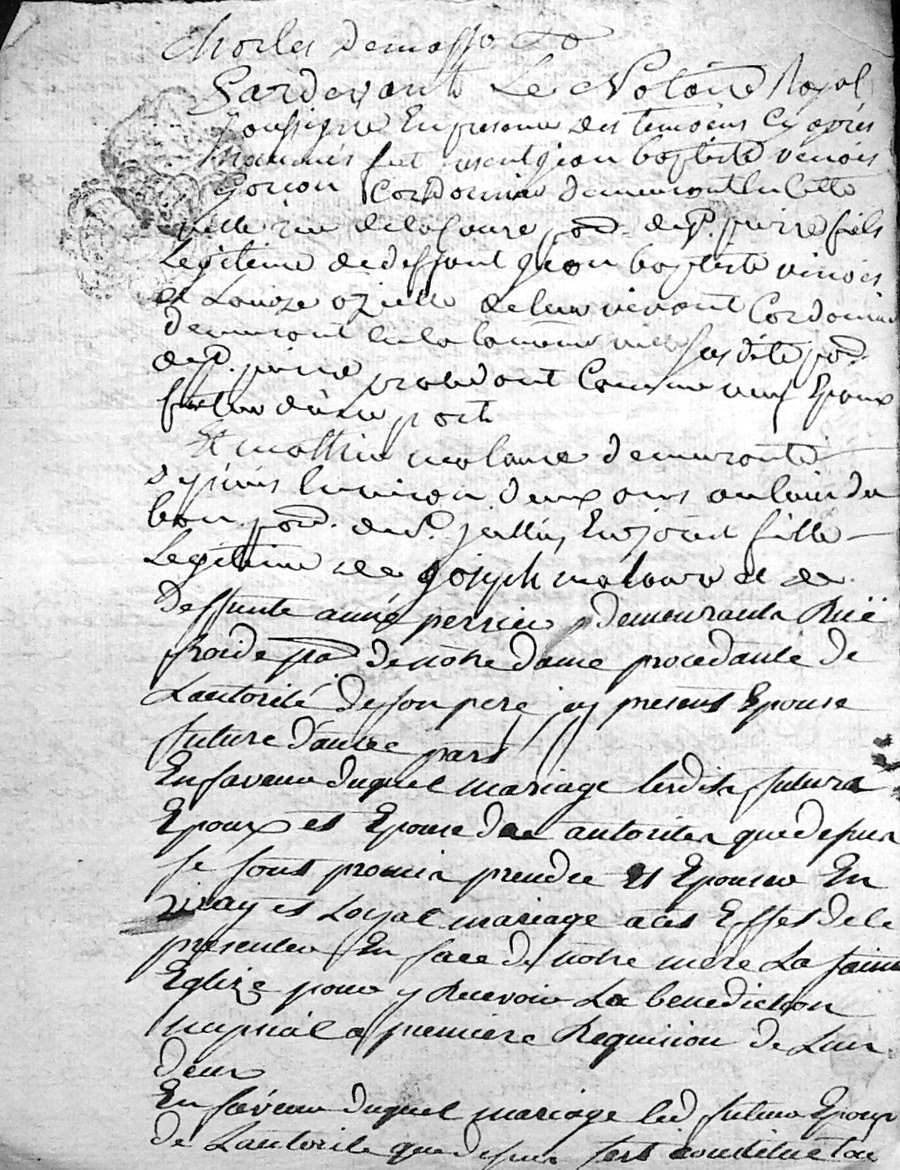 Charles demasso
Pardevant Le Notaire Royal
soussigne En presence des temoins Cy apres
nommés fut present jean baptiste venois
garçon Cordonnier demeurant En Cette
ville rue de la parr. de St. pierre fils
Legitime de deffunt jean baptiste venois
et Louize de leur vivant Cordonnier
demeurant En la ville susdite par.
de St. pierre procedant Comme Epoux
futur d'une part
Et malaure demeurante
depuis Environ deux ans au
bourg par. de St. fille
Legitime de joseph malaure et de
deffunte anne perrier demeurants Ruë
froide par. de notre dame procedante de
L'autorité de son pere, cy present Epouse
future d'autre part
En faveur duquel mariage lesdits futurs
Epoux et Epouse de autorites que dessus
se sont promis prendre et Epouser En
vray et Loyal mariage a ces Effes de le
presenter En face de notre mere La sainte
Eglize pour y Recevoir La benediction
nupsial a premiere Requision de L'un
deux
En faveur duquel mariage led futur Epoux
de L'autorite que dessus sest constitue